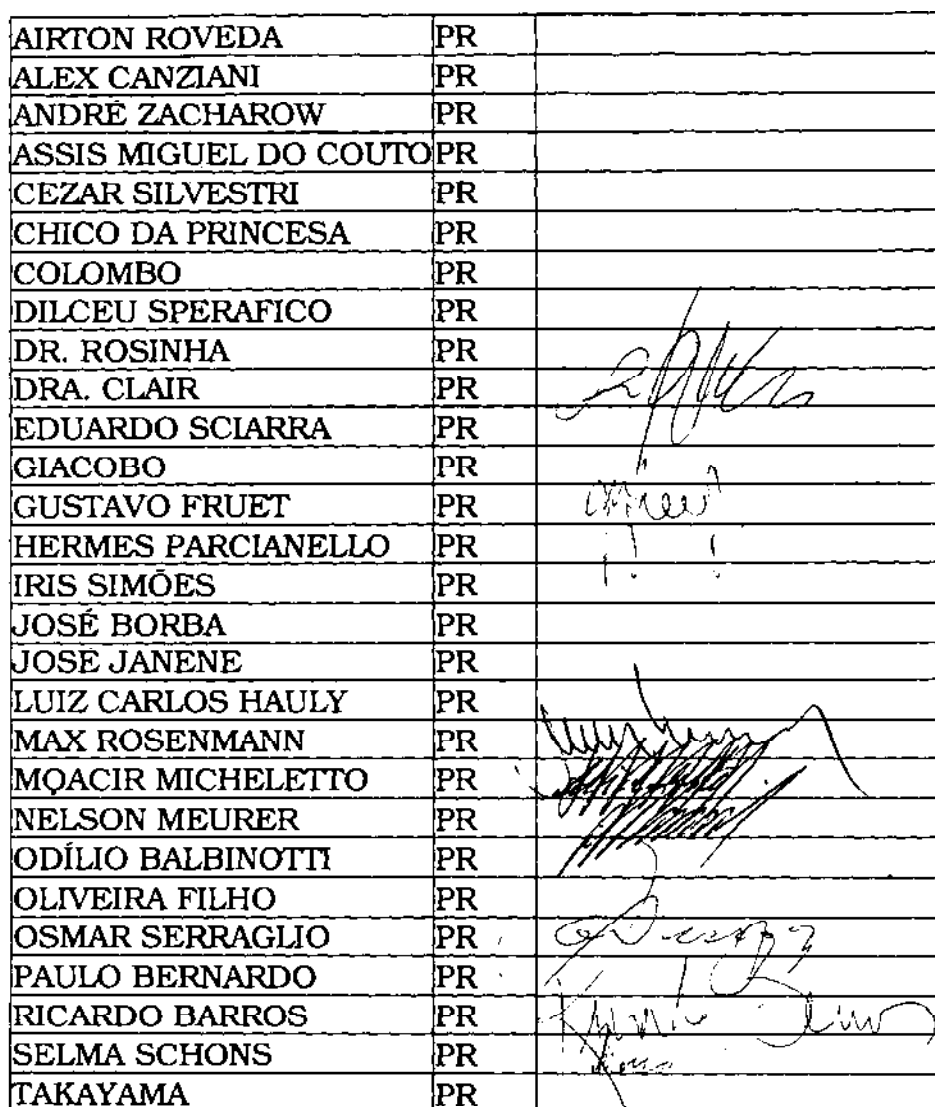 AIRTON ROVEDA PR
ALEX CANZIANI PR
ANDRÉ ZACHAROW PR
ASSIS MIGUEL DO COUTO PR
CEZAR SILVESTRI PR
CHICO DA PRINCESA PR
COLOMBO PR
DILCEU SPERAFICO PR
DR. ROSINHA PR
DRA. CLAIR PR
EDUARDO SCIARRA PR
GIACOBO PR
GUSTAVO FRUET PR
HERMES PARCIANELLO PR
IRIS SIMÕES PR
JOSÉ BORBA PR
JOSÉ JANENE PR
LUIZ CARLOS HAULY PR
MAX ROSENMANN PR
MOACIR MICHELETTO PR
NELSON MEURER PR
ODÍLIO BALBINOTTI PR
OLIVEIRA FILHO PR
OSMAR SERRAGLIO PR
PAULO BERNARDO PR
RICARDO BARROS PR
SELMA SCHONS PR
TAKAYAMA PR